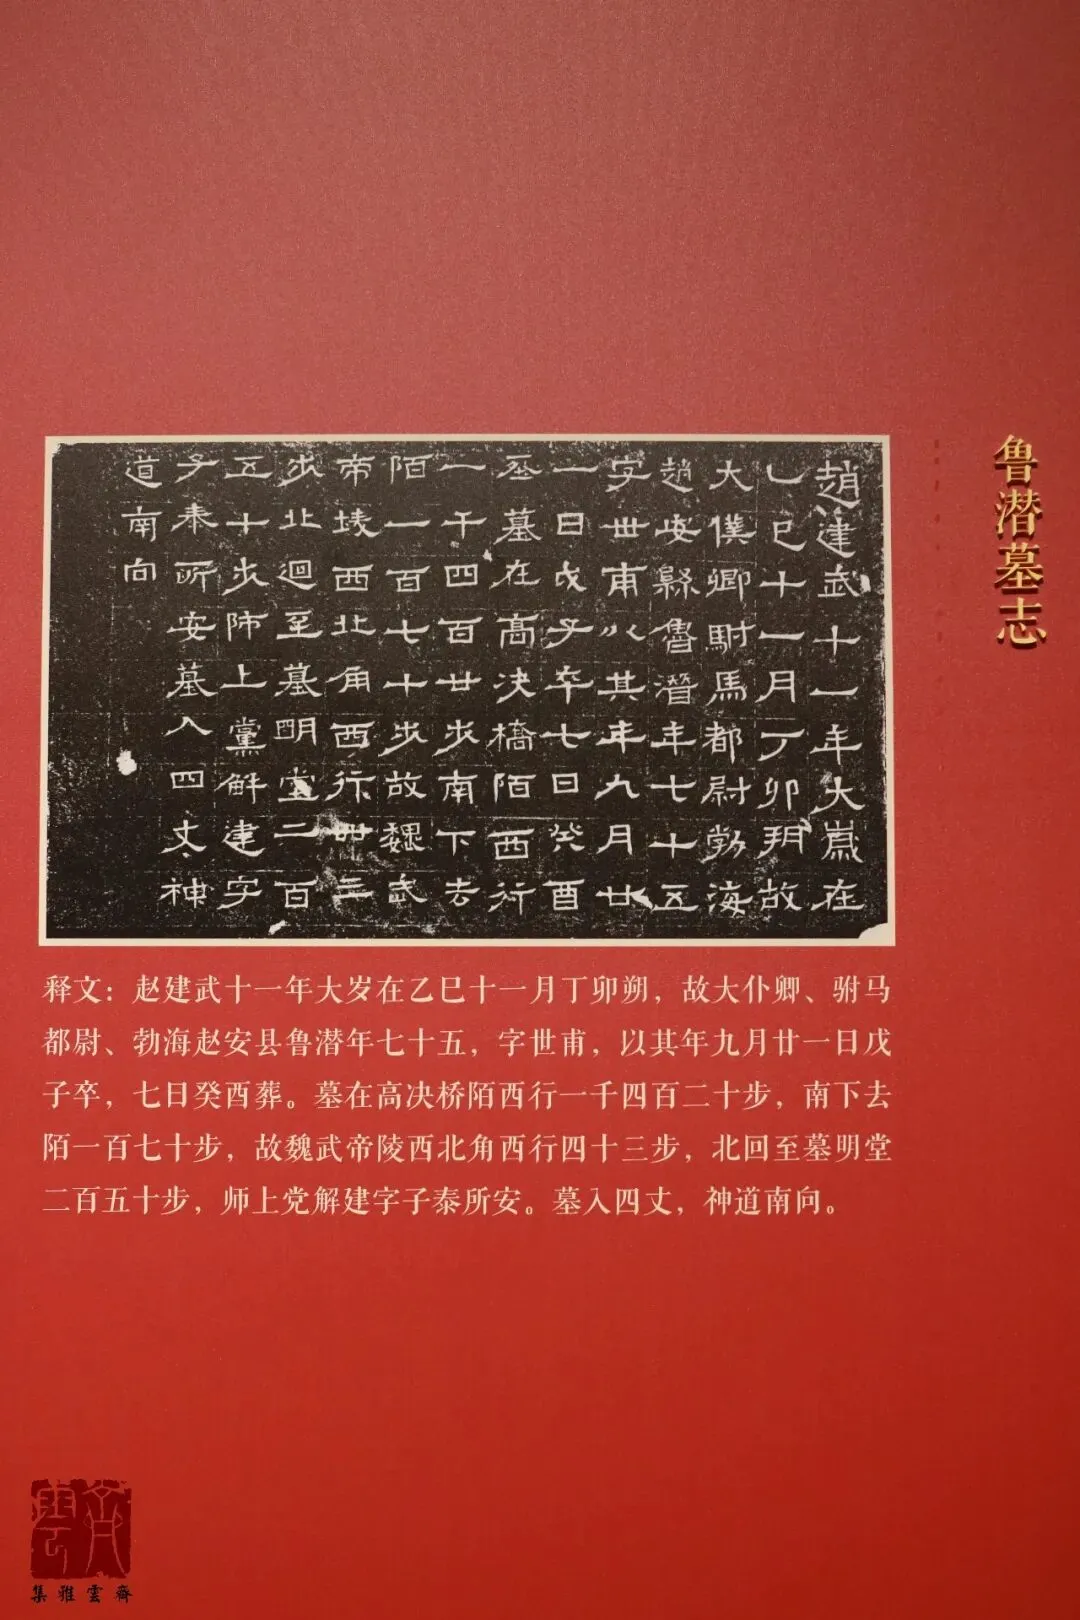 鲁潜墓志
趙建武十一年大歲在
乙巳十一月丁卯朔故
大僕卿駙馬都尉勃海
趙安縣魯潛年七十五
字世甫以其年九月廿
一日戊子卒七日癸酉
墓在高决橋陌西行
一千四百廿步南下去
陌一百七十步故魏武
帝陵西北角西行卌三
步北迴至墓明堂二百
五十步师上黨解建字
子泰所安墓入四丈神
道南向
释文：赵建武十一年大岁在乙巳十一月丁卯朔，故大仆卿、驸马
都尉、勃海赵安县鲁潜年七十五，字世甫，以其年九月廿一日戊
子卒，七日癸酉葬。墓在高决桥陌西行一千四百二十步，南下去
陌一百七十步，故魏武帝陵西北角西行四十三步，北回至墓明堂
二百五十步，师上党解建字子泰所安。墓入四丈，神道南向。
集雅雲齋